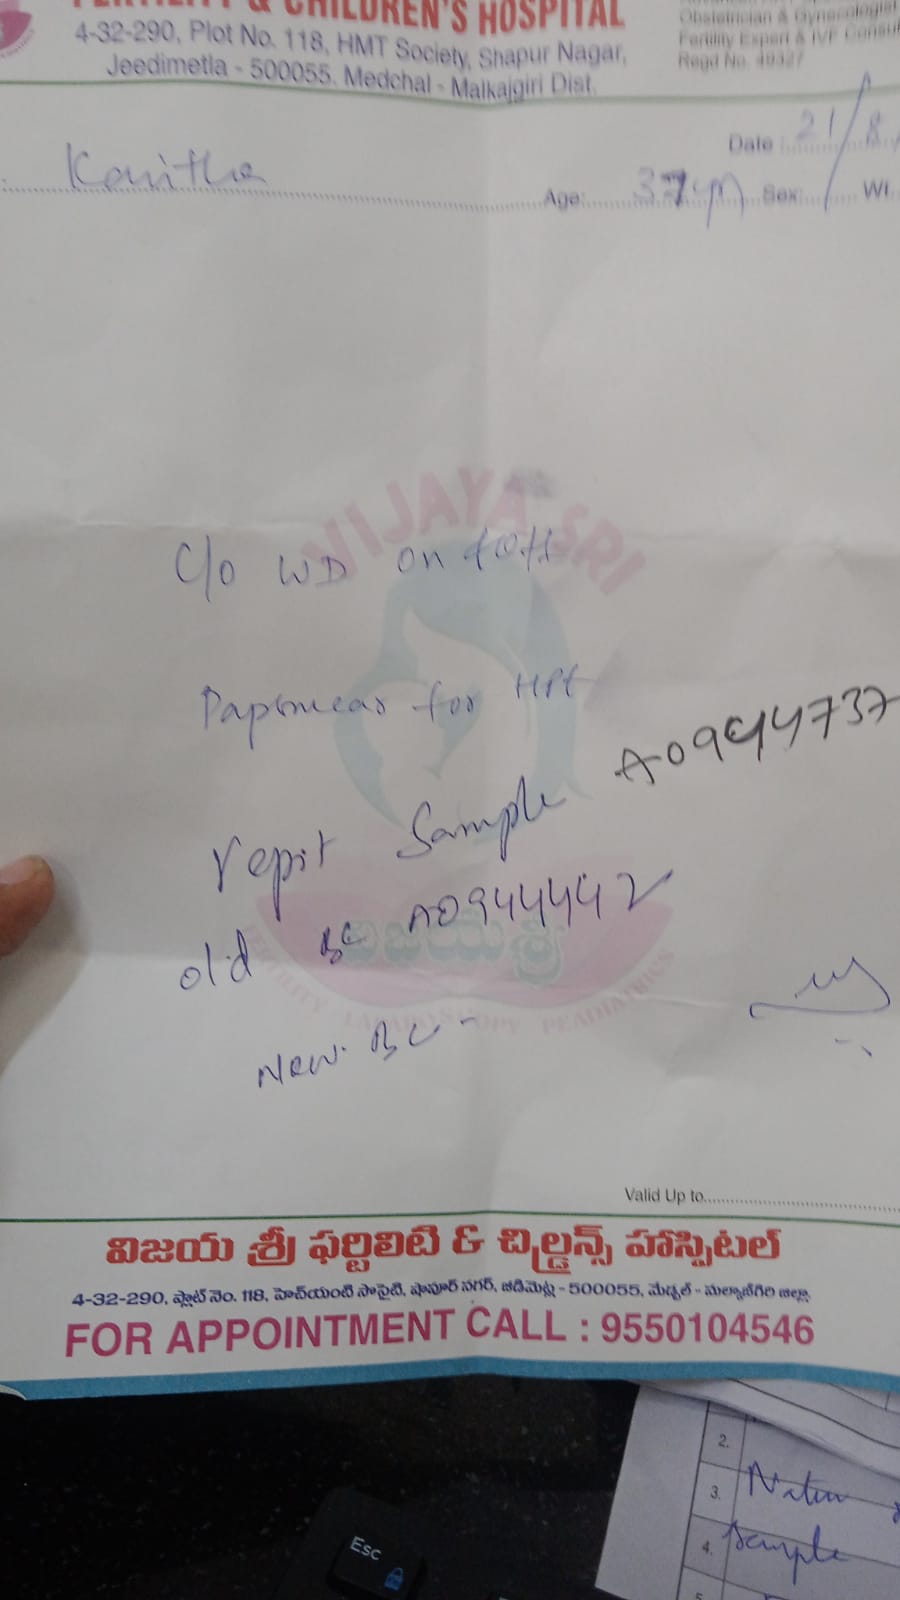 & CHILDREN'S HOSPITAL
4-32-290, Plot No. 118, HMT Society, Shapur Nagar,
Jeedimetla - 500055. Medchal - Malkajgiri Dist.
Obstetrician & Gynecologist
Fertility Expert & IVF Consu
Regd No. 49327
Date : 21/8
Kavitha
Age: 37yrs Sex: Wt.
VIJAYA SRI
C/o WD on & off
Papsmear for HPE
A0944737
repit Sample
old BC A0944442
విజయశ్రీ
FERTILITY - LAPAROSCOPY PEADIATRICS
New. BC -
Valid Up to
విజయ శ్రీ ఫర్టిలిటి & చిల్డ్రన్స్ హాస్పిటల్
4-32-290, ప్లాట్ నెం. 118, హెచ్ఎంటి సొసైటి, షాపూర్ నగర్, జీడిమెట్ల - 500055, మేడ్చల్ - మల్కాజ్‌గిరి జిల్లా
FOR APPOINTMENT CALL : 9550104546
2.
3.
4. Sample
Esc